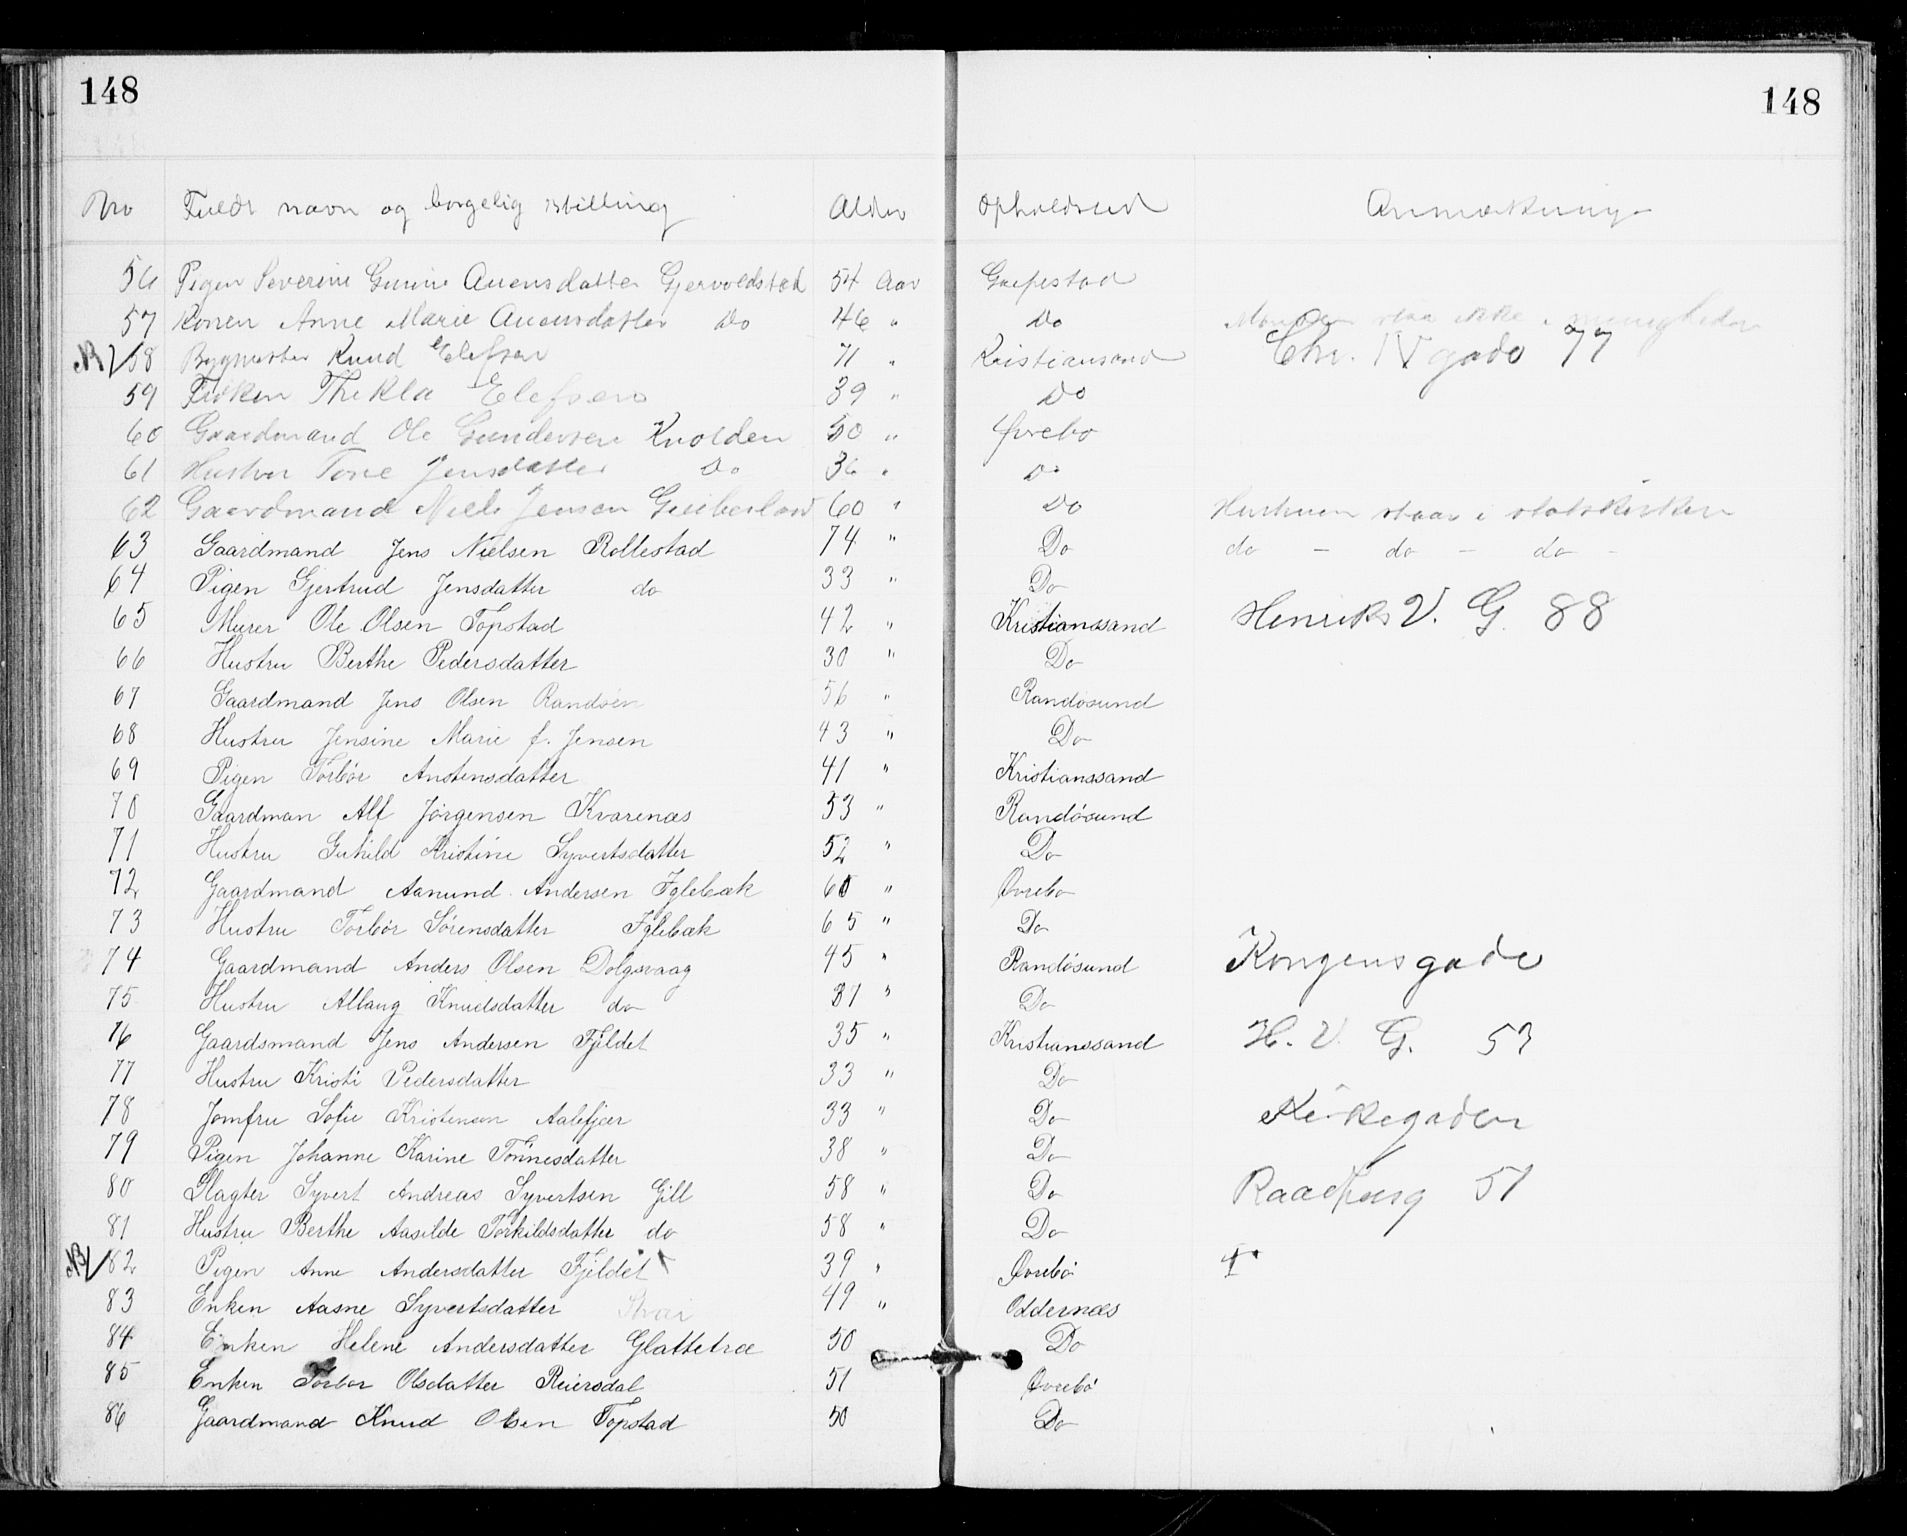 148 148
No Fuldt navn og borgelig stilling Alder Opholdssted Anmærkning
56 Pigen Severine Gurine Auensdatter Gjervoldstad 54 Aar Greipestad
57 Konen Anne Marie Auensdatter Do 46 " Do Manden staa ikke i menigheden
NB 58 Bygmester Knud Elefsen 71 " Kristiansand Chr. IV gade 77
59 Frøken Thekla Elefsen 39 " Do
60 Gaardmand Ole Gundersen Knolden 50 " Øvrebo
61 Hustru Tone Jensdatter Do 36 " Do
62 Gaardmand Niels Jensen 60 " Do Hustruen staar i statskirken
63 Gaardmand Jens Nielsen Rollestad 74 " Do do – do – do –
64 Pigen Gjertrud Jensdatter do 33 " Do
65 Murer Ole Olsen Topstad 42 " Kristianssand Henriks V. G. 88
66 Hustru Berthe Pedersdatter 30 " Do
67 Gaardmand Jens Olsen Randøen 56 " Randøsund
68 Hustru Jensine Marie f. Jensen 43 " Do
69 Pigen Torbør Anstensdatter 41 " Kristianssand
70 Gaardman Alf Jørgensen Kvarenæs 53 " Randøsund
71 Hustru Guhild Kristine Syvertsdatter 52 " Do
72 Gaardmand Aanund Andersen Iglebæk 60 " Øvrebo
73 Hustru Torbør Sørensdatter Iglebæk 65 " Do
74 Gaardmand Anders Olsen Dolgsvaag 45 " Randøsund Kongensgade
75 Hustru Allaug Knudsdatter do 37 " Do
76 Gaardsmand Jens Andersen Fjeldet 35 " Kristianssand H. V. G. 53
77 Hustru Kristi Pedersdatter 33 " Do
78 Jomfru Sofie Kristensen Aalefjær 33 " Do Kirkegaden
79 Pigen Johanne Karine Tønnesdatter 38 " Do
80 Slagter Syvert Andreas Syvertsen Gill 58 " Do Raadhusg 51
81 Hustru Berthe Aasilde Torkildsdatter do 58 " Do
NB 82 Pigen Anne Andersdatter Fjeldet 39 " Øvrebø †
83 Enken Aasne Syvertsdatter 49 " Oddernæs
84 Enken Helene Andersdatter Glattetræ 50 Do
85 Enken Torbor Olsdatter Reiersdal 51 Øvrebø
86 Gaardmand Knud Olsen Topstad 50 Do